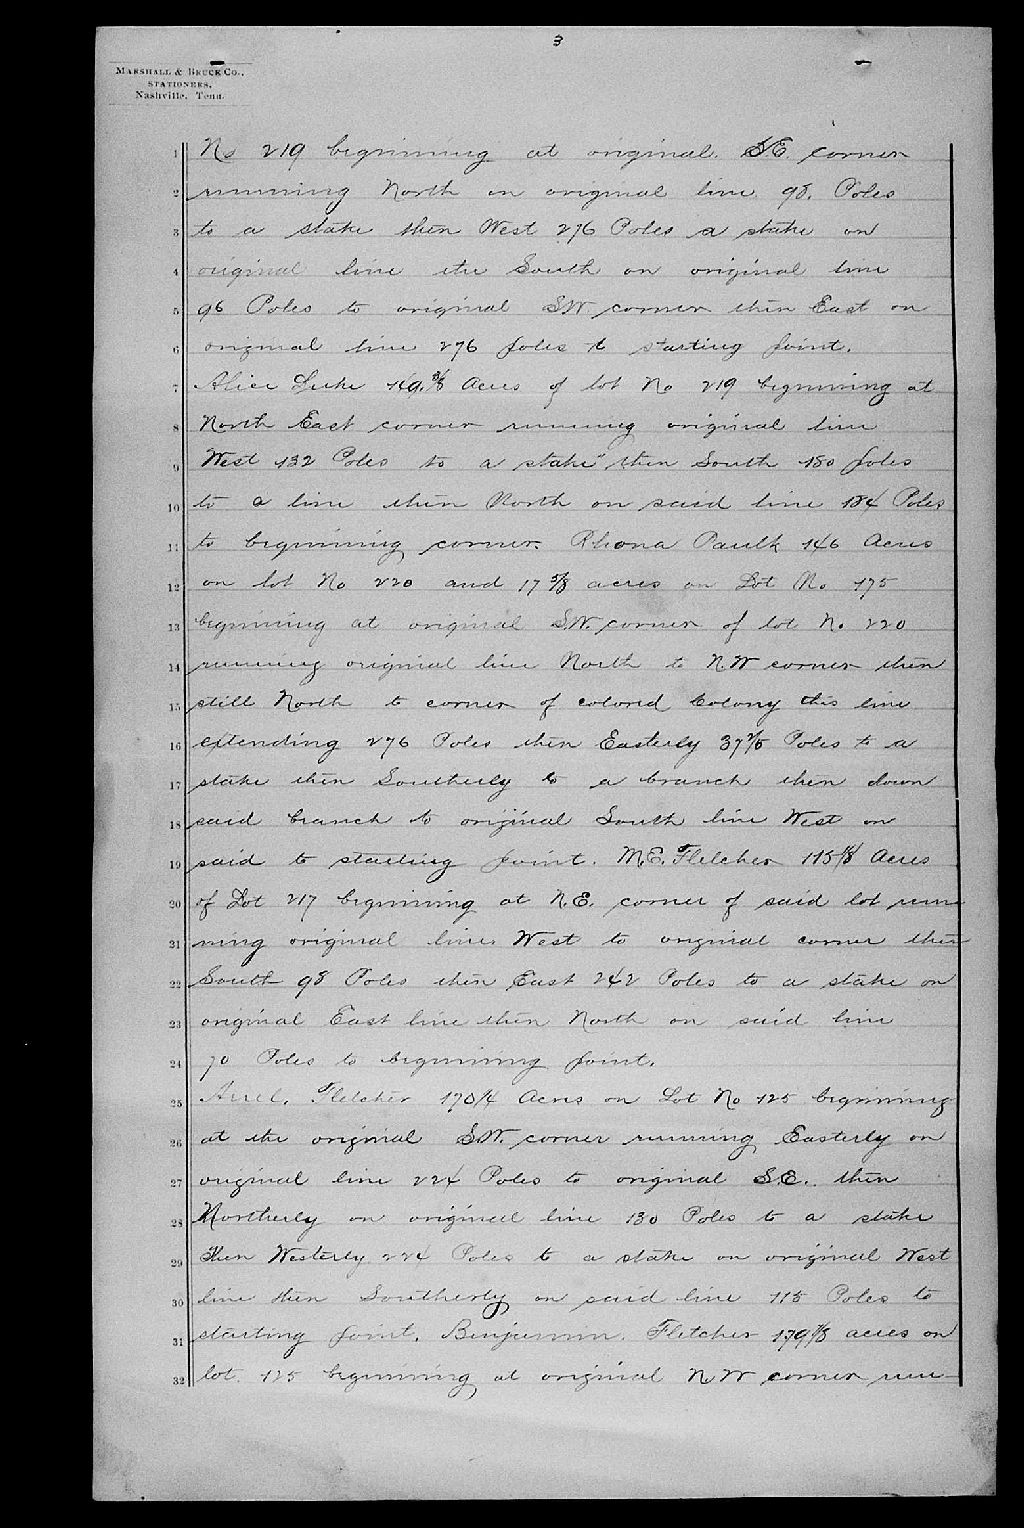 3
MARSHALL & BRUCE CO.,
STATIONERS,
Nashville, Tenn.
1 No 219 beginning at original S.E. corner
2 running North on original line 98. Poles
3 to a stake then West 276 Poles a stake on
4 original line the South on original line
5 96 Poles to original S.W. corner then East on
6 original line 276 poles t starting point.
7 Alice Luke 149. Acres of lot No 219 beginning at
8 North East corner running original line
9 West 132 Poles to a stake then South 180 poles
10 to a line then North on said line 184 Poles
11 to beginning corner. Rhona Paulk 146 Acres
12 on lot No 220 and 17 5/8 acres on Lot No 175
13 beginning at original S.W. corner of lot No. 220
14 running original line North to N.W corner then
15 still North to corner of colored Colony this line
16 extending 276 Poles then Easterly 37 Poles to a
17 stake then Southerly to a branch then down
18 said branch to original South line West on
19 said to starting point. M.E. Fletcher 115 Acres
20 of Lot 217 beginning at N.E. corner of said lot runn
21 ning original line West to original corner then
22 South 98 Poles then East 242 Poles to a stake on
23 original East line then North on said line
24 70 Poles to beginning point.
25 Fletcher 170 Acres on Lot No 125 beginning
26 at the original S.W. corner running Easterly on
27 original line 224 Poles to original S.E.. then
28 Northerly on original line 130 Poles to a stake
29 then Westerly 224 Poles to a stake on original West
30 line then Southerly on said line 115 Poles to
31 starting point. Benjamin. Fletcher 179 7/8 acres on
32 lot. 125 beginning at original N.W corner run-